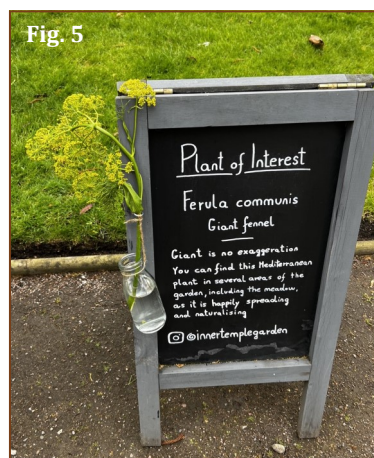 Fig. 5
Plant of Interest
Ferula communis
Giant fennel
Giant is no exaggeration
You can find this Mediterranean
plant in several areas of the
garden, including the meadow,
as it is happily spreading
and naturalising
@innertemplegarden